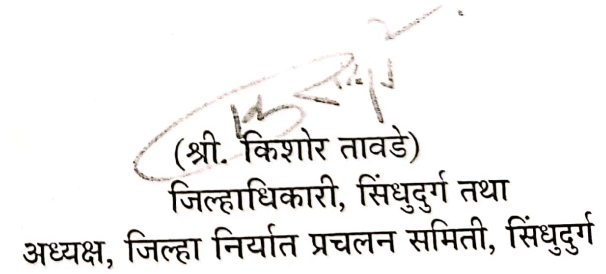 (श्री. किशोर तावडे)
जिल्हाधिकारी, सिंधुदुर्ग तथा
अध्यक्ष, जिल्हा निर्यात प्रचलन समिती, सिंधुदुर्ग